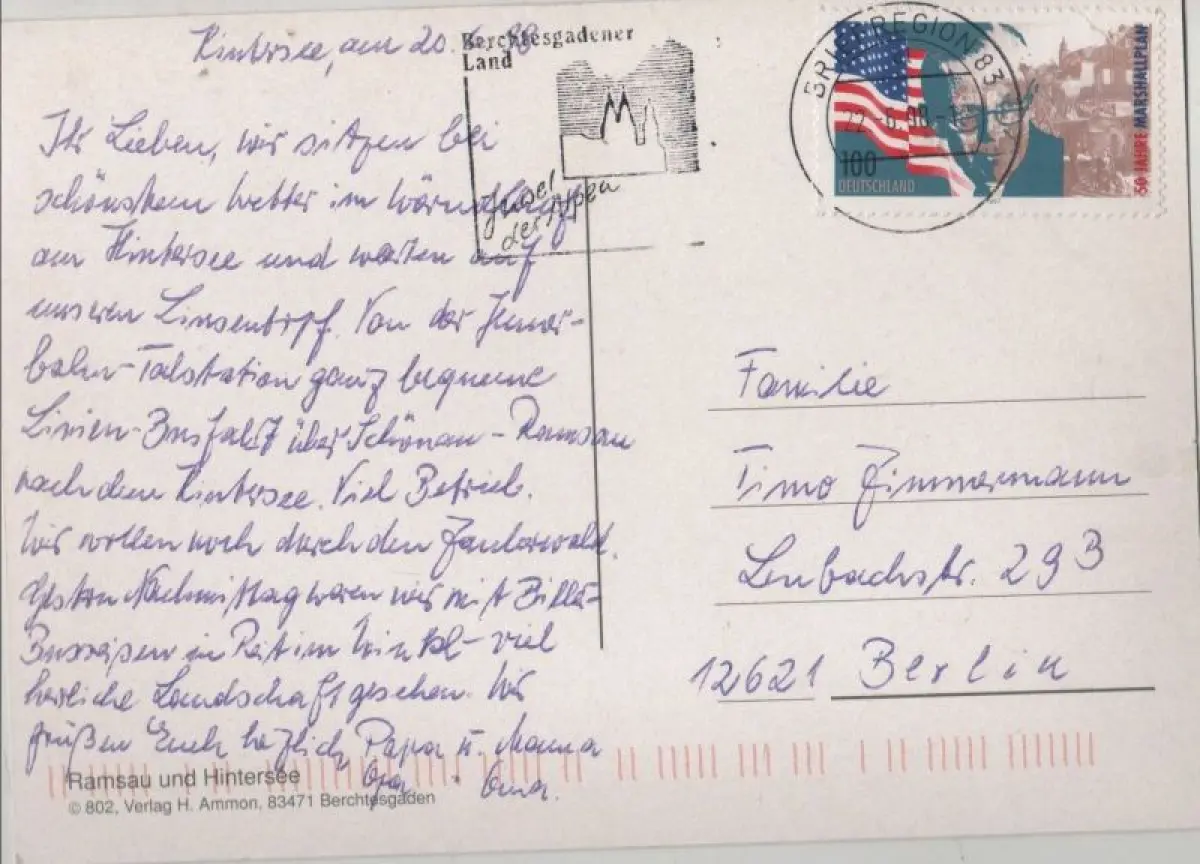 Hintersee, am 20.6.98
Ihr Lieben, wir sitzen bei
schönstem Wetter im
am Hintersee und warten auf
unseren Linsentopf. Von der Jenner-
bahn-Talstation ganz bequeme
Linien-Busfahrt über Schönau-Ramsau
nach dem Hintersee. Viel Betrieb.
Wir wollen noch durch den Zauberwald.
Gestern Nachmittag waren wir mit
in Reit im Winkl - viel
herrliche Landschaft gesehen. Wir
grüßen Euch herzlich Papa u. Mama
Opa " Oma.
Ramsau und Hintersee
© 802, Verlag H. Ammon, 83471 Berchtesgaden
Berchtesgadener
Land
Insel
der Alpen
BRIEFREGION 83
22.-6.98.-1
100
DEUTSCHLAND
50 JAHRE MARSHALLPLAN
Familie
Timo Zimmermann
Lenbachstr. 29B
12621 Berlin